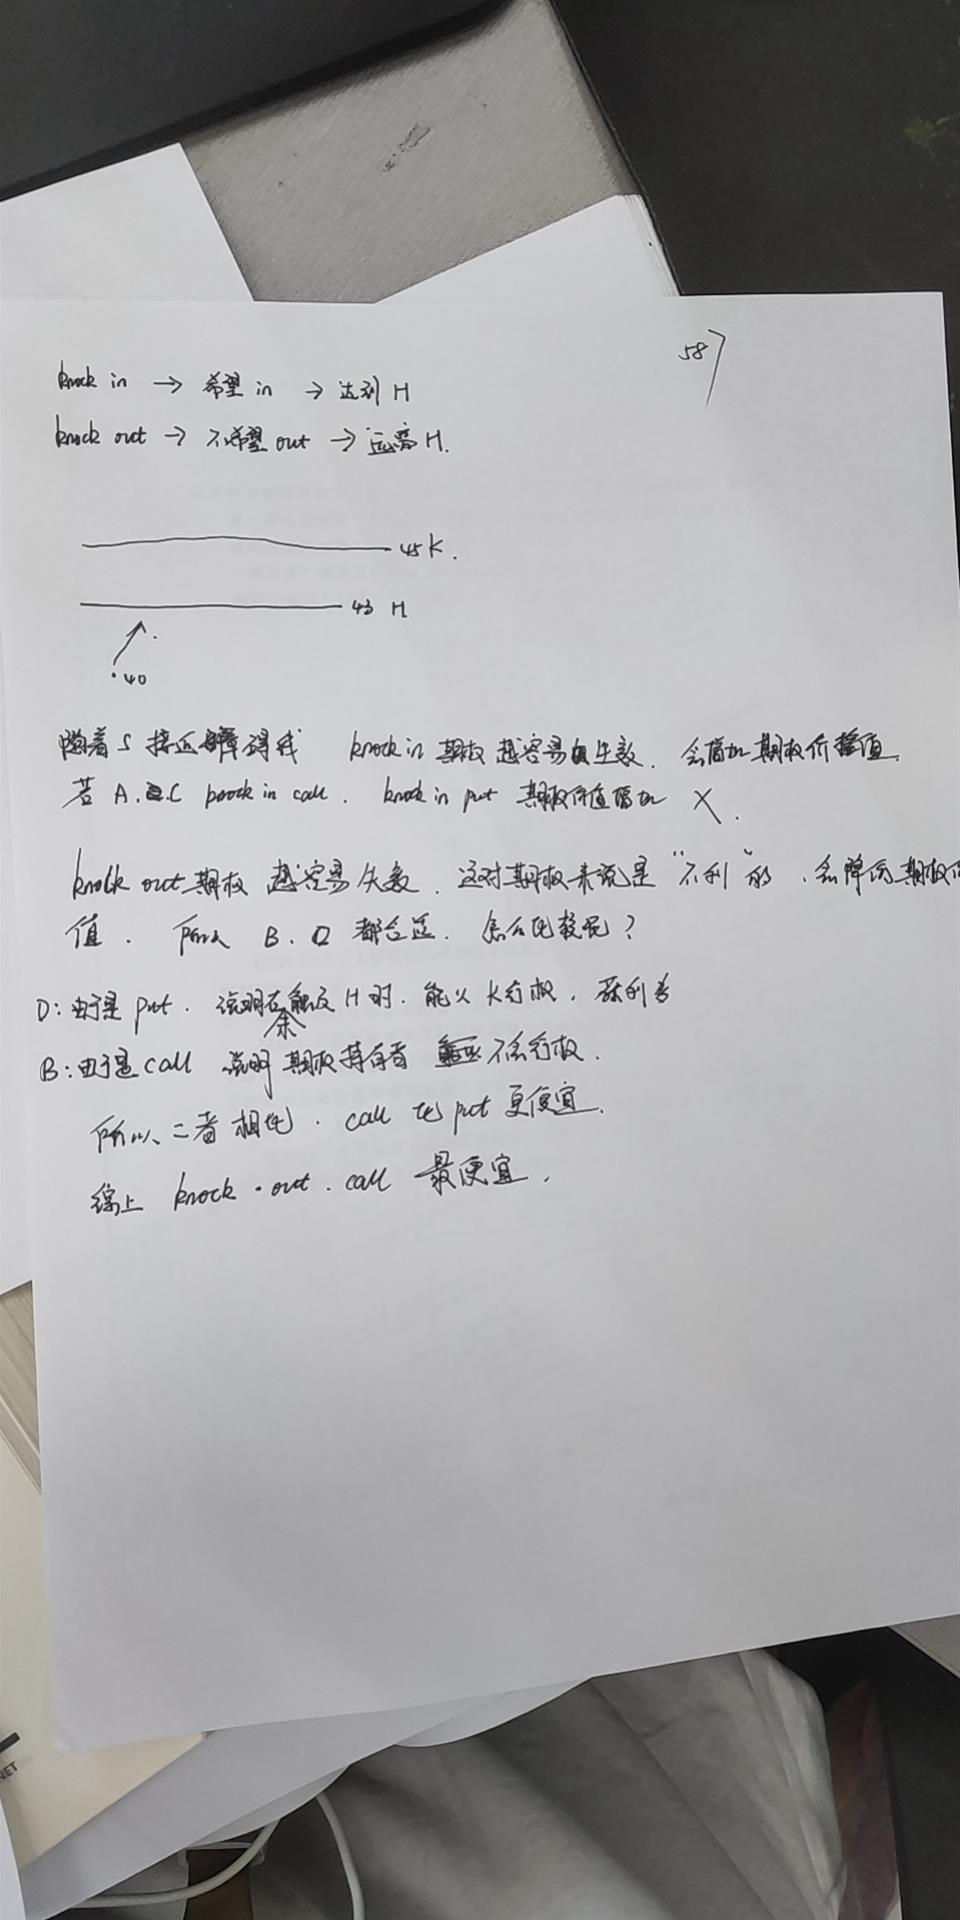 58
knock in → 希望 in → 达到 H
knock out → 不希望 out → 远离 H.
45 K.
43 H
40
随着 S 接近障碍线 knock in 期权 越容易生效. 会增加期权价值.
若 A. C knock in call. knock in put 期权价值增加 X.
knock out 期权 越容易失效. 这对期权来说是 "不利" 的, 会降低期权价
值. 所以 B. D 都合适. 怎么比较呢?
D: 由于是 put. 说明在触及 H 时. 能以 K 行权.
B: 由于是 call 说明 期权持有者 不会行权.
所以, 二者相比. call 比 put 更便宜.
综上 knock-out. call 最便宜.
NET